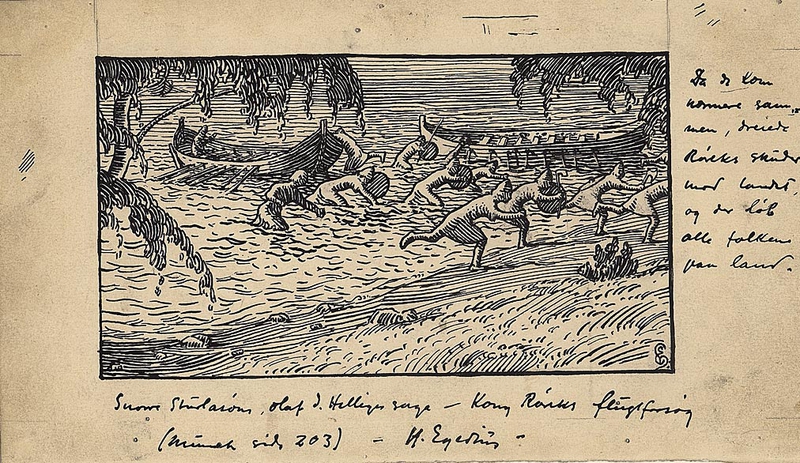 Da de kom
nærmere sam-
men, dreiede
Røreks skuder
mod landet,
og der løb
alle folkene
paa land.
Snorre Sturlasøns, Olaf d. Helliges saga – Kong Røreks flugtforsøg
(Munch side 203) – H. Egedius –